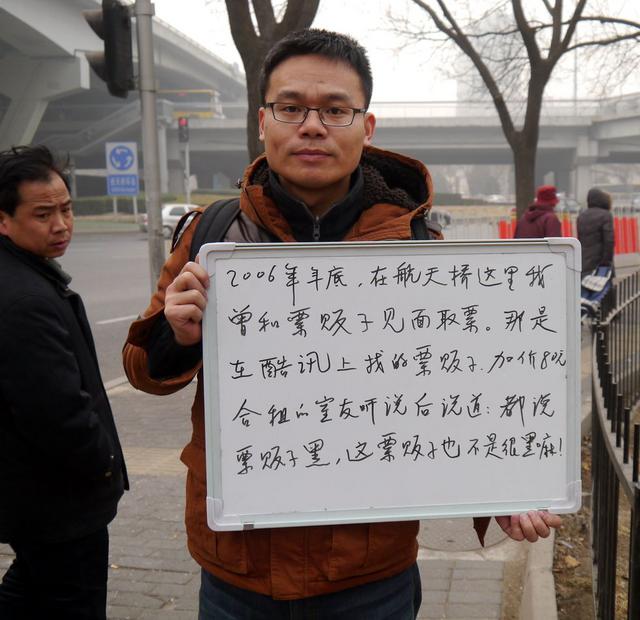 2006年年底，在航天桥这里我
曾和票贩子见面取票。那是
在酷讯上找的票贩子.加价80元
合租的室友听说后说道：都说
票贩子黑，这票贩子也不是很黑嘛！